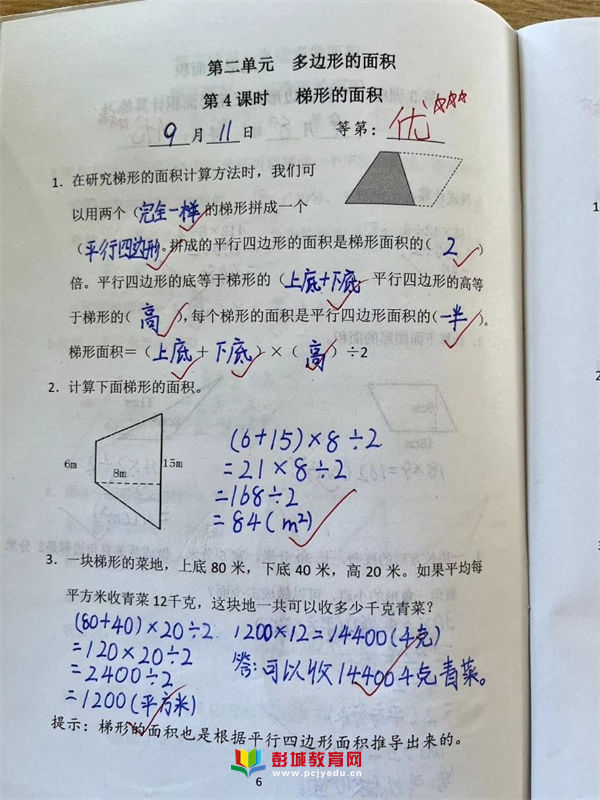 第二单元 多边形的面积
第4课时 梯形的面积
9月11日 等第：优
1. 在研究梯形的面积计算方法时，我们可
以用两个（完全一样）的梯形拼成一个
（平行四边形。拼成的平行四边形的面积是梯形面积的（2）
倍。平行四边形的底等于梯形的（上底+下底 平行四边形的高等
于梯形的（高），每个梯形的面积是平行四边形面积的（一半）。
梯形面积＝（上底＋下底）×（高）÷2
2. 计算下面梯形的面积。
6m 8m 15m
(6+15)×8÷2
=21×8÷2
=168÷2
=84(m²)
3. 一块梯形的菜地，上底80米，下底40米，高20米。如果平均每
平方米收青菜12千克，这块地一共可以收多少千克青菜？
(80+40)×20÷2
=120×20÷2
=2400÷2
=1200(平方米)
1200×12=14400(千克)
答:可以收14400千克青菜。
提示：梯形的面积也是根据平行四边形面积推导出来的。
6
彭城教育网
www.pcjyedu.cn